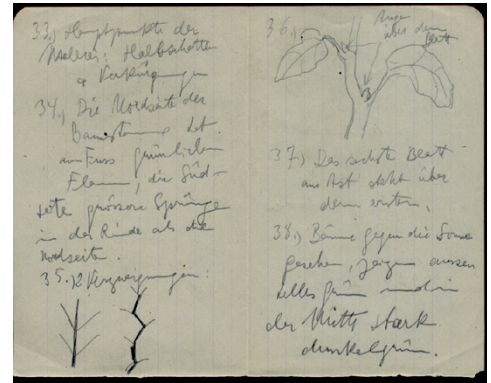 33.) Hauptpunkte der
Malerei: Halbschatten
& Verkürzungen
34.) Die Nordseite der
Baumstämme hat
am Fuss grünlichen
die Süd-
seite grössere Sprünge
in der Rinde als die
Nordseite.
35.) 2 Verzweigungen:
36.)
Auge
über dem
Blatt
37.) Das sechste Blatt
am Ast steht über
dem ersten.
38.) Bäume gegen die Sonne
gesehen, zeigen aussen
helles Grün und in
der Mitte stark
dunkelgrün.